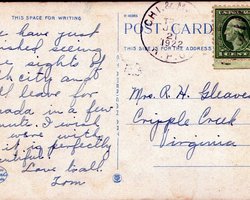 THIS SPACE FOR WRITING
have just
finished seeing
the sights of
city and
will leave for
Canada in a few
minutes. I wish
were with
it is perfectly
beautiful.
Love to all.
Tom
POST CARD
THIS SIDE IS FOR ADDRESS
Mrs. R. H. Gleaves
Cripple Creek
Virginia